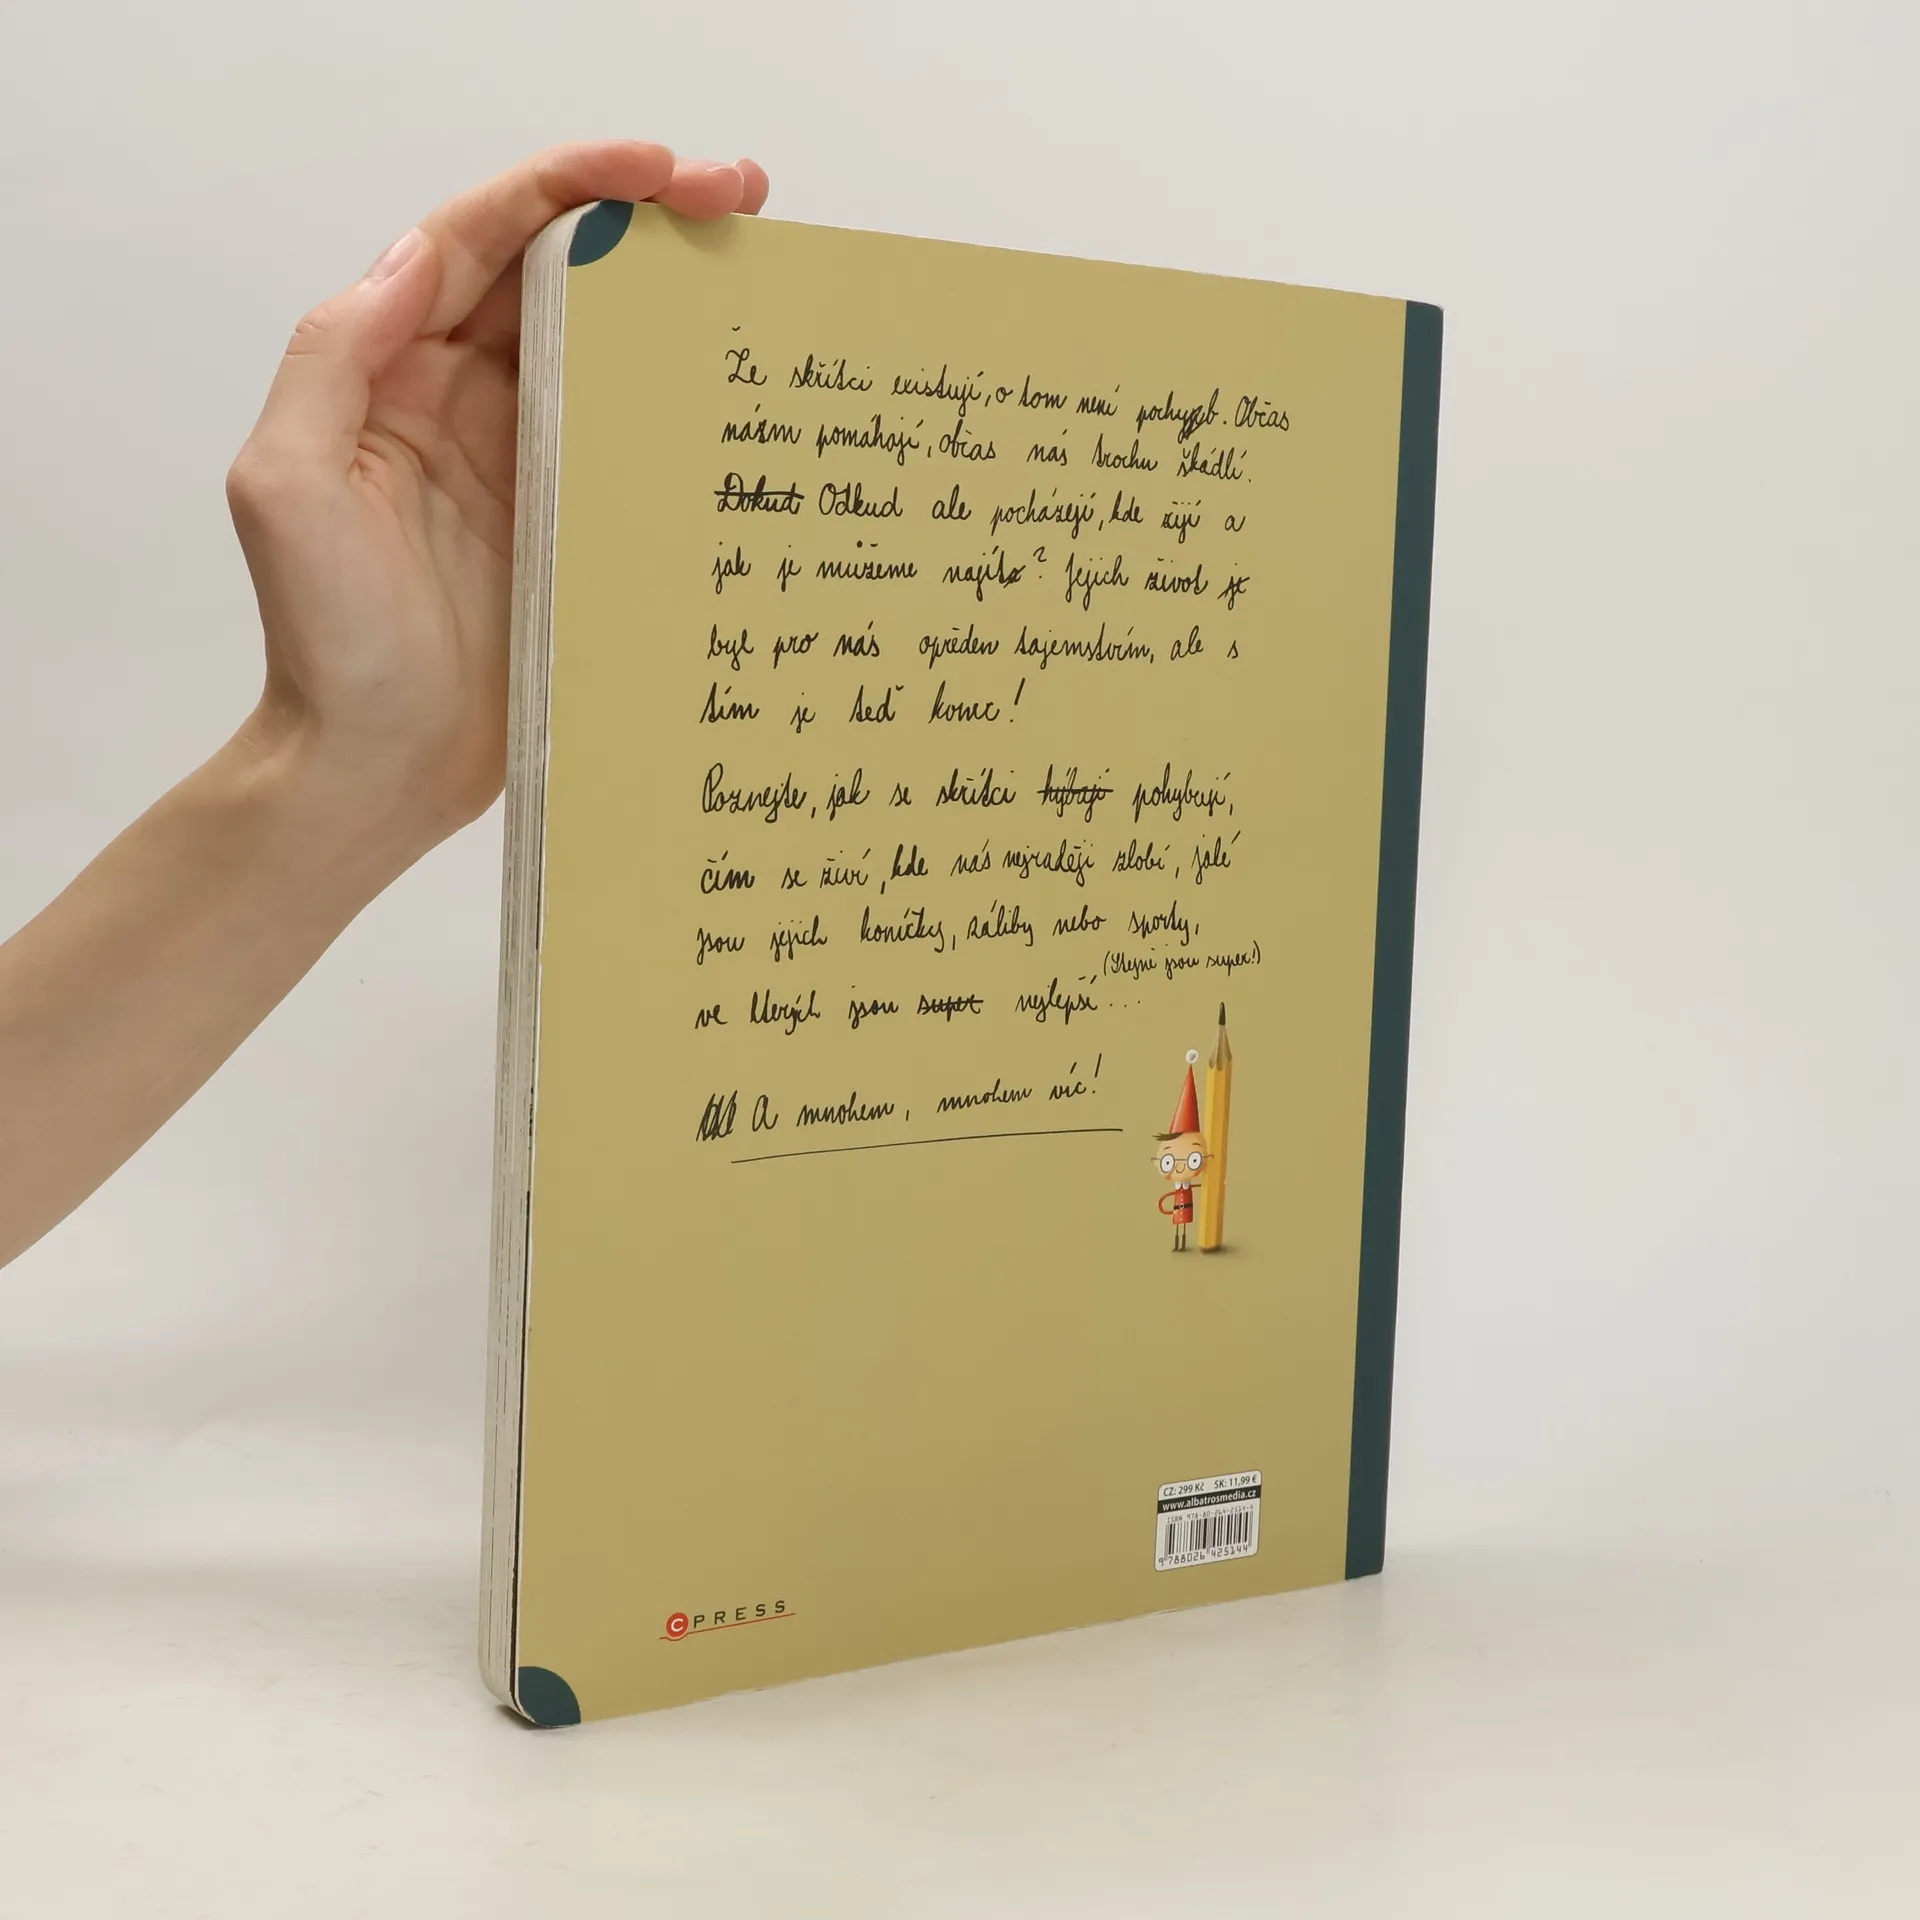 Že skřítci existují, o tom není pochyb. Občas
nám pomáhají, občas nás trochu škádlí.
Dokud Odkud ale pocházejí, kde žijí a
jak je můžeme najít? Jejich život je
byl pro nás opředen tajemstvím, ale s
tím je teď konec!
Poznejte, jak se skřítci hýbají pohybují,
čím se živí, kde nás nejraději zlobí, jaké
jsou jejich koníčky, záliby nebo sporty,
(Stejně jsou super!)
ve kterých jsou super nejlepší ...
A mnohem, mnohem víc!
CZ: 299 Kč SK: 11,99 €
www.albatrosmedia.cz
ISBN 978-80-264-2514-4
9 788026 425144
CPRESS